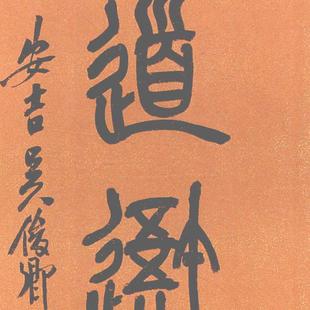 道
安吉吳俊卿